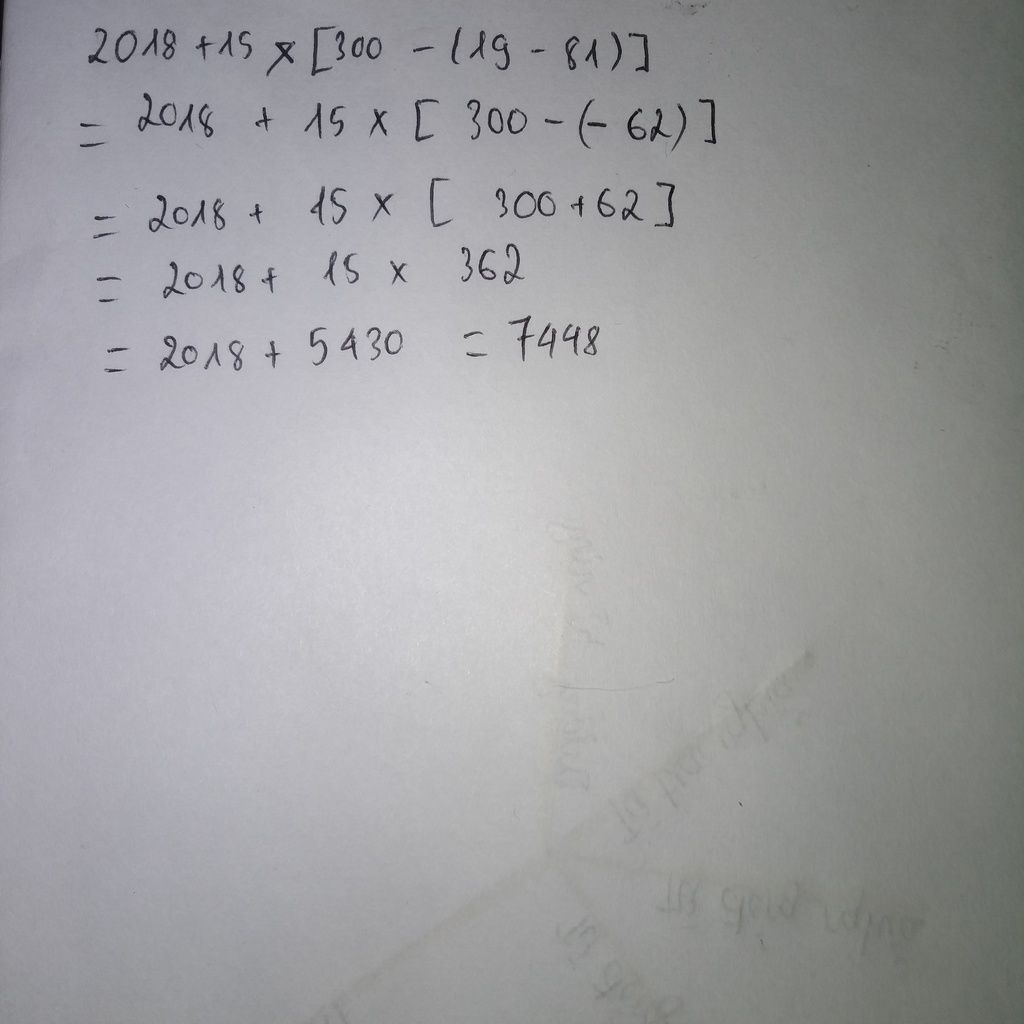 2018 + 15 × [300 - (19 - 81)]
= 2018 + 15 × [ 300 - (- 62) ]
= 2018 + 15 × [ 300 + 62 ]
= 2018 + 15 × 362
= 2018 + 5430 = 7448